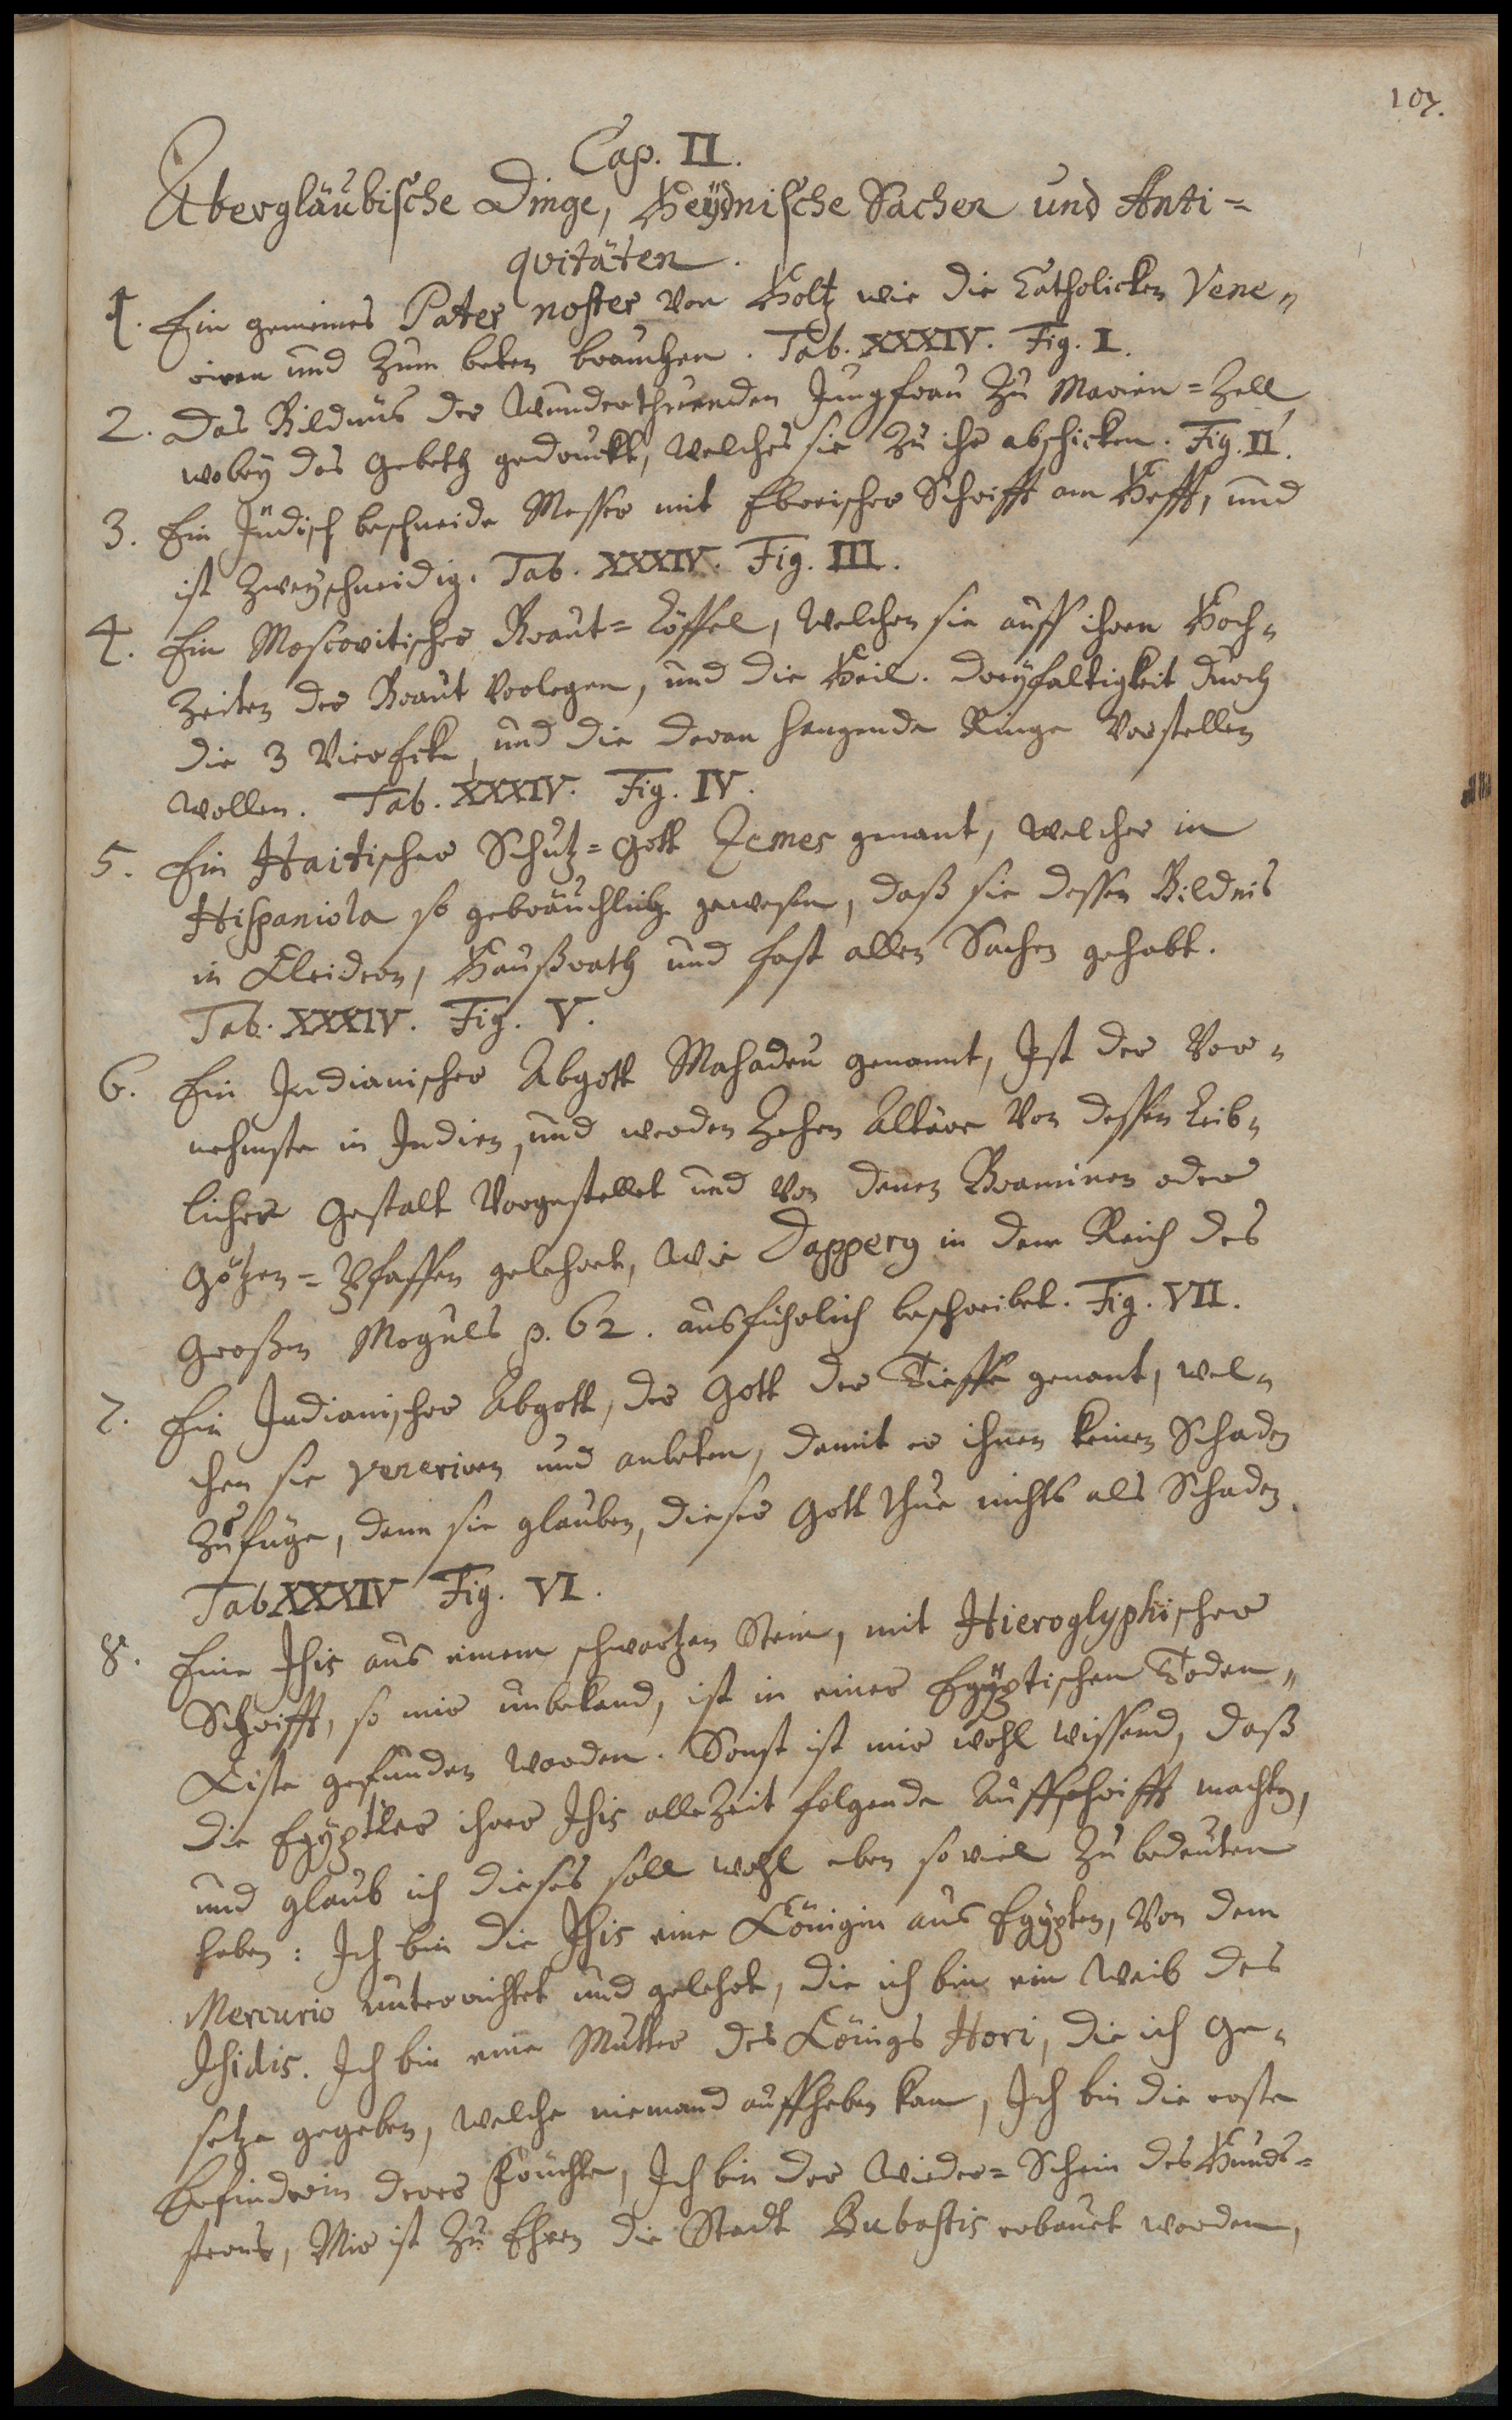 107.
Cap. II.
Abergläubische Dinge, Heÿdnische Sachen und Anti=
qvitäten.
1. Ein gemeines Pater noster von Holtz wie die Catholicken Vene=
riren und zum beten brauchen. Tab. XXXIV. Fig. I.
2. Das Bildnüs der Wunderthuenden Jungfrau zu Marien=Zell
wobey das Gebeth gedruckt, welches sie zu ihr abschicken. Fig. II.
3. Ein Jüdisch beschneide Messer mit Ebreischer Schrifft am Hefft, und
ist zweyschneidig. Tab. XXXIV. Fig. III.
4. Ein Moscovitischer Braut=Löffel, welchen sie auff ihren Hoch=
zeiten der Braut vorlegen, und die Heil. Dreyfaltigkeit durch
die 3 Vier Ecke, und die daran hangende Ringe vorstellen
wollen. Tab. XXXIV. Fig. IV.
5. Ein Haitischer Schutz=Gott Zemes genant, welcher in
Hispaniola so gebräuchlich gewesen, daß sie dessen Bildnis
in Kleidern, Haußrath und fast allen Sachen gehabt.
Tab. XXXIV. Fig. V.
6. Ein Indianischer Abgott Mahadeu genannt, Ist der Vor=
nehmste in Indien, und werden zehen Altäre von dessen Leib=
licher Gestalt vorgestellet und von denen Braminen oder
Götzen=Pfaffen gelehret, wie Dappery in dem Reich des
Großen Moguls p. 62. ausführlich beschreibet. Fig. VII.
7. Ein Indianischer Abgott, der Gott der Tieffe genant, wel=
chen sie veneriren und anbeten, damit er ihnen keinen Schaden
zufüge, denn sie glauben, dieser Gott thue nichts als Schaden.
Tab XXXIV Fig. VI.
8. Eine Isis aus einem schwartzen Stein, mit Hieroglyphischer
Schrifft, so mir unbekand, ist in einer Egÿptischen Toden=
Kiste gefunden worden. Sonst ist mir wohl wissend, daß
die Egÿptier ihrer Isis alle Zeit folgende Auffschrifft machten,
und glaub ich dieses soll wohl eben so viel zu bedeuten
haben: Ich bin die Isis eine Königin aus Egÿpten, von dem
Mercurio unterrichtet und gelehrt, die ich bin ein Weib des
Isidis. Ich bin eine Mutter des Königs Hori, die ich Ge=
setze gegeben, welche niemand auffheben kan, Ich bin die erste
Erfinderin derer Früchte, Ich bin der Wieder=Schein des Hunds=
sterns, Mir ist zu Ehren die Stadt Bubastis erbauet worden,